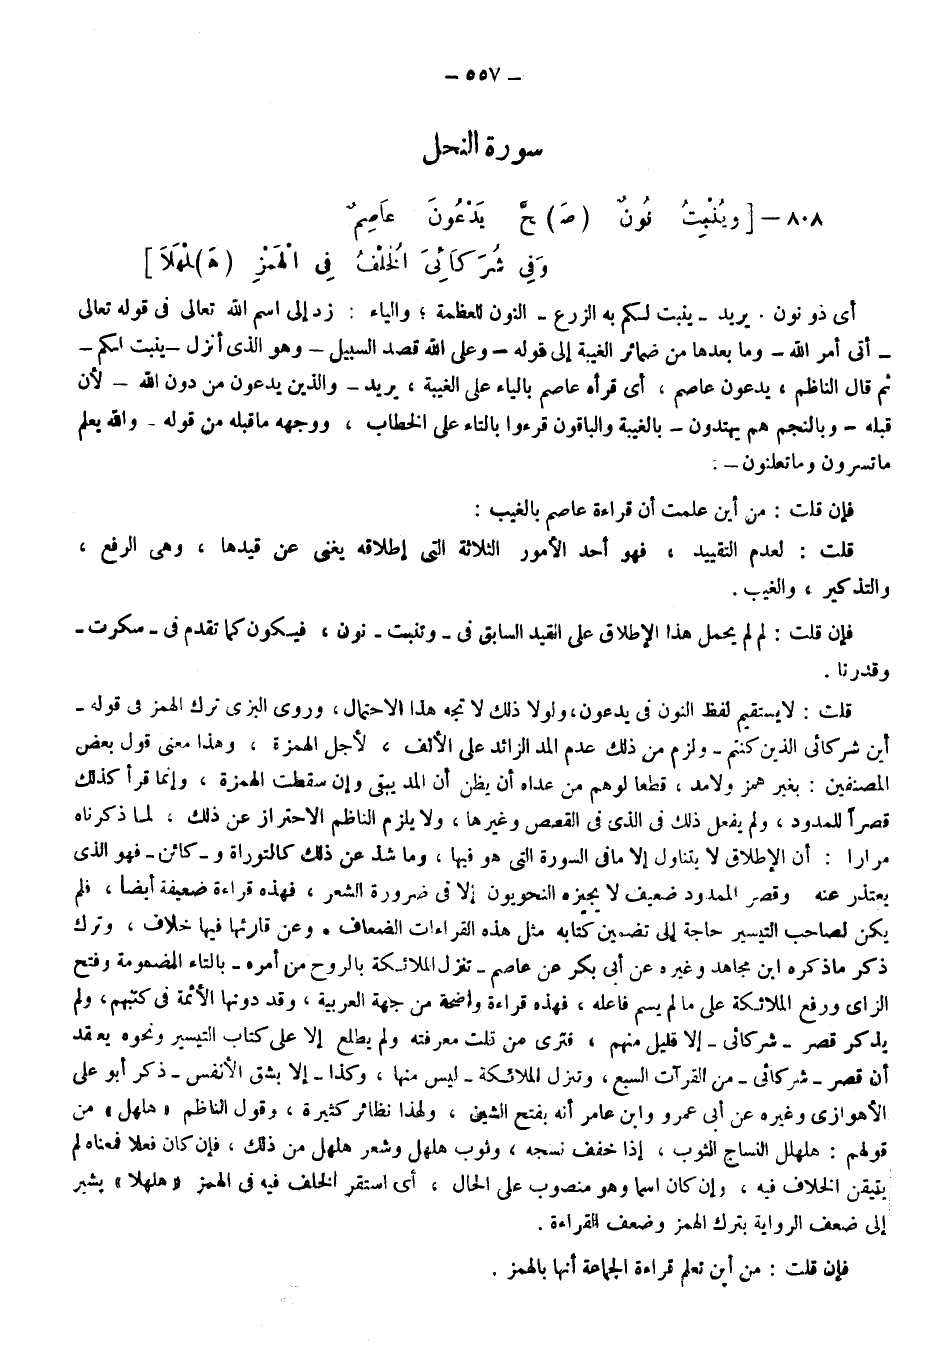 ــ ٥٥٧ ــ
سورة النحل
٨٠٨ – [ ويُنْبِتُ نُونٌ (صَ) حَّ يَدْعُونَ عَاصِمٌ
وَفِي شُرَكَائِيَ الْخُلْفُ فِي الْهَمْزِ (هَـ)لْهَلَا ]
أى ذو نون . يريد ــ ينبت لـكم به الزرع ــ النون للعظمة ؛ والياء : زد إلى اسم الله تعالى فى قوله تعالى
ــ أتى أمر الله ــ وما بعدها من ضمائر الغيبة إلى قوله ــ وعلى الله قصد السبيل ــ وهو الذى أنزل ــ ينبت لكم ــ
ثم قال الناظم ، يدعون عاصم ، أى قرأه عاصم بالياء على الغيبة ، يريد ــ والذين يدعون من دون الله ــ لأن
قبله ــ وبالنجم هم يهتدون ــ بالغيبة والباقون قرءوا بالتاء على الخطاب ، ووجهه ماقبله من قوله ــ والله يعلم
ماتسرون وماتعلنون ــ :
فإن قلت : من أين علمت أن قراءة عاصم بالغيب :
قلت : لعدم التقييد ، فهو أحد الأمور الثلاثة التى إطلاقه يغنى عن قيدها ، وهى الرفع ،
والتذكير ، والغيب .
فإن قلت : لم لم يحمل هذا الإطلاق على القيد السابق فى ــ وتنبت ــ نون ، فيـكون كما تقدم فى ــ سكرت ــ
وقدرنا .
قلت : لايستقيم لفظ النون فى يدعون، ولولا ذلك لاتجه هذا الاحتمال، وروى البزى ترك الهمز فى قوله ــ
أين شركائى الذين كنتم ــ ولزم من ذلك عدم المد الزائد على الألف ، لأجل الهمزة ، وهذا معنى قول بعض
المصنفين : بغير همز ولامد ، قطعا لوهم من عداه أن يظن أن المد يبقى وإن سقطت الهمزة ، وإنما قرأ كذلك
قصراً للمدود ، ولم يفعل ذلك فى الذى فى القصص وغيرها ، ولا يلزم الناظم الاحتراز عن ذلك ، لمـا ذكرناه
مرارا : أن الإطلاق لا يتناول إلا مافى السورة التى هو فيها ، وما شذ عن ذلك كالتوراة و ــ كائن ــ فهو الذى
يعتذر عنه وقصر الممدود ضعيف لا يجيزه النحويون إلا فى ضرورة الشعر ، فهذه قراءة ضعيفة أيضا ، فلم
يكن لصاحب التيسير حاجة إلى تضمين كتابه مثل هذه القراءات الضعاف . وعن قارئها فيها خلاف ، وترك
ذكر ماذكره ابن مجاهد وغيره عن أبى بكر عن عاصم ــ تنزل الملائـكة بالروح من أمره ــ بالتاء المضمومة وفتح
الزاى ورفع الملائـكة على مالم يسم فاعله ، فهذه قراءة واضحة من جهة العربية ، وقد دونها الأئمة فى كتبهم، ولم
يذكر قصر ــ شركائى ــ إلا قليل منهم ، فترى من قلت معرفته ولم يطلع إلا على كتاب التيسير ونحوه يعتقد
أن قصر ــ شركائى ــ من القرآت السبع ، وتنزل الملائـكة ــ ليس منها ، وكذا ــ إلا بشق الأنفس ــ ذكر أبو على
الأهوازى وغيره عن أبى عمرو وابن عامر أنه بفتح الشين ، ولهذا نظائر كثيرة ، وقول الناظم « هلهل » من
قولهم : هلهلل النساج الثوب ، إذا خفف نسجه ، وثوب هلهل وشعر هلهل من ذلك ، فإن كان فعلا فمعناه لم
يتيقن الخلاف فيه ، وإن كان اسما وهو منصوب على الحال ، أى استقر الخلف فيه فى الهمز « هلهلا » يشير
إلى ضعف الرواية بترك الهمز وضعف القراءة .
فإن قلت : من أين تعلم قراءة الجماعة أنها بالهمز .